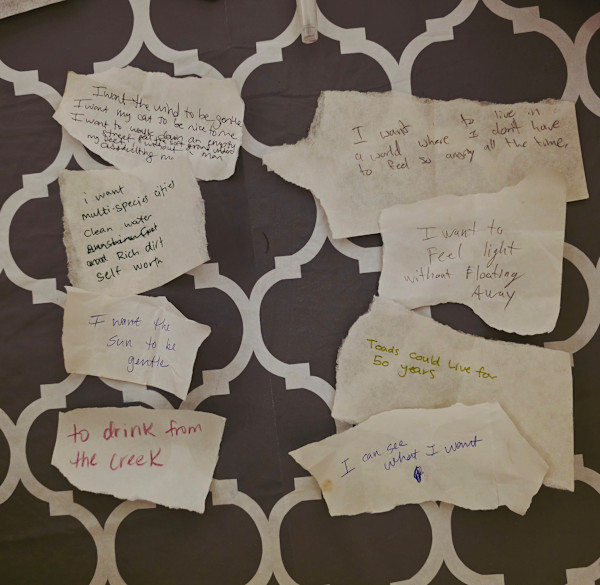 I want the wind to be gentle
I want my cat to be nice to me
I want to walk down an empty
street eat hot ground under
my feet without a man
catcalling me
i want
multi-species cities
clean water
Rich dirt
self worth
I want the
sun to be
gentle
to drink from
the creek
I want to live in
a world where I don't have
to feel so angry all the time
I want to
Feel light
without floating
Away
Toads could live for
50 years
I can see
what I want